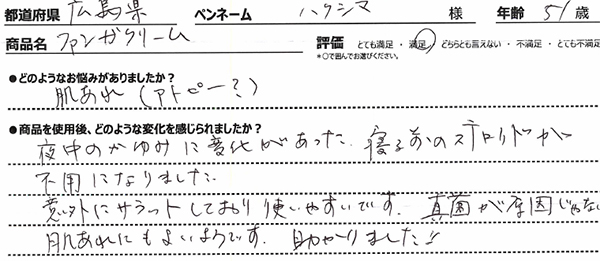 都道府県 広島県 ペンネーム ハクシマ 様 年齢 51 歳
商品名 ファンガクリーム 評価 とても満足・満足・どちらとも言えない・不満足・とても不満足
*○で囲んでお選びください。
●どのようなお悩みがありましたか?
肌あれ(アトピー?)
●商品を使用後、どのような変化を感じられましたか?
夜中のかゆみに変化があった. 寝る前のステロイドが
不用になりました.
意外にサラットしており使いやすいです. 真菌が原因じゃない
肌あれにもよいようです. 助かりました!!